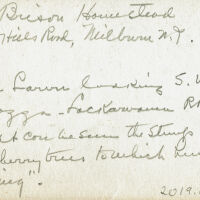 Brison Homestead
Hills Road, Milburn N.J.
Lawn looking S.W
Lackawanna R
at can be seen the stumps
cherry trees to which
ing".
2019.